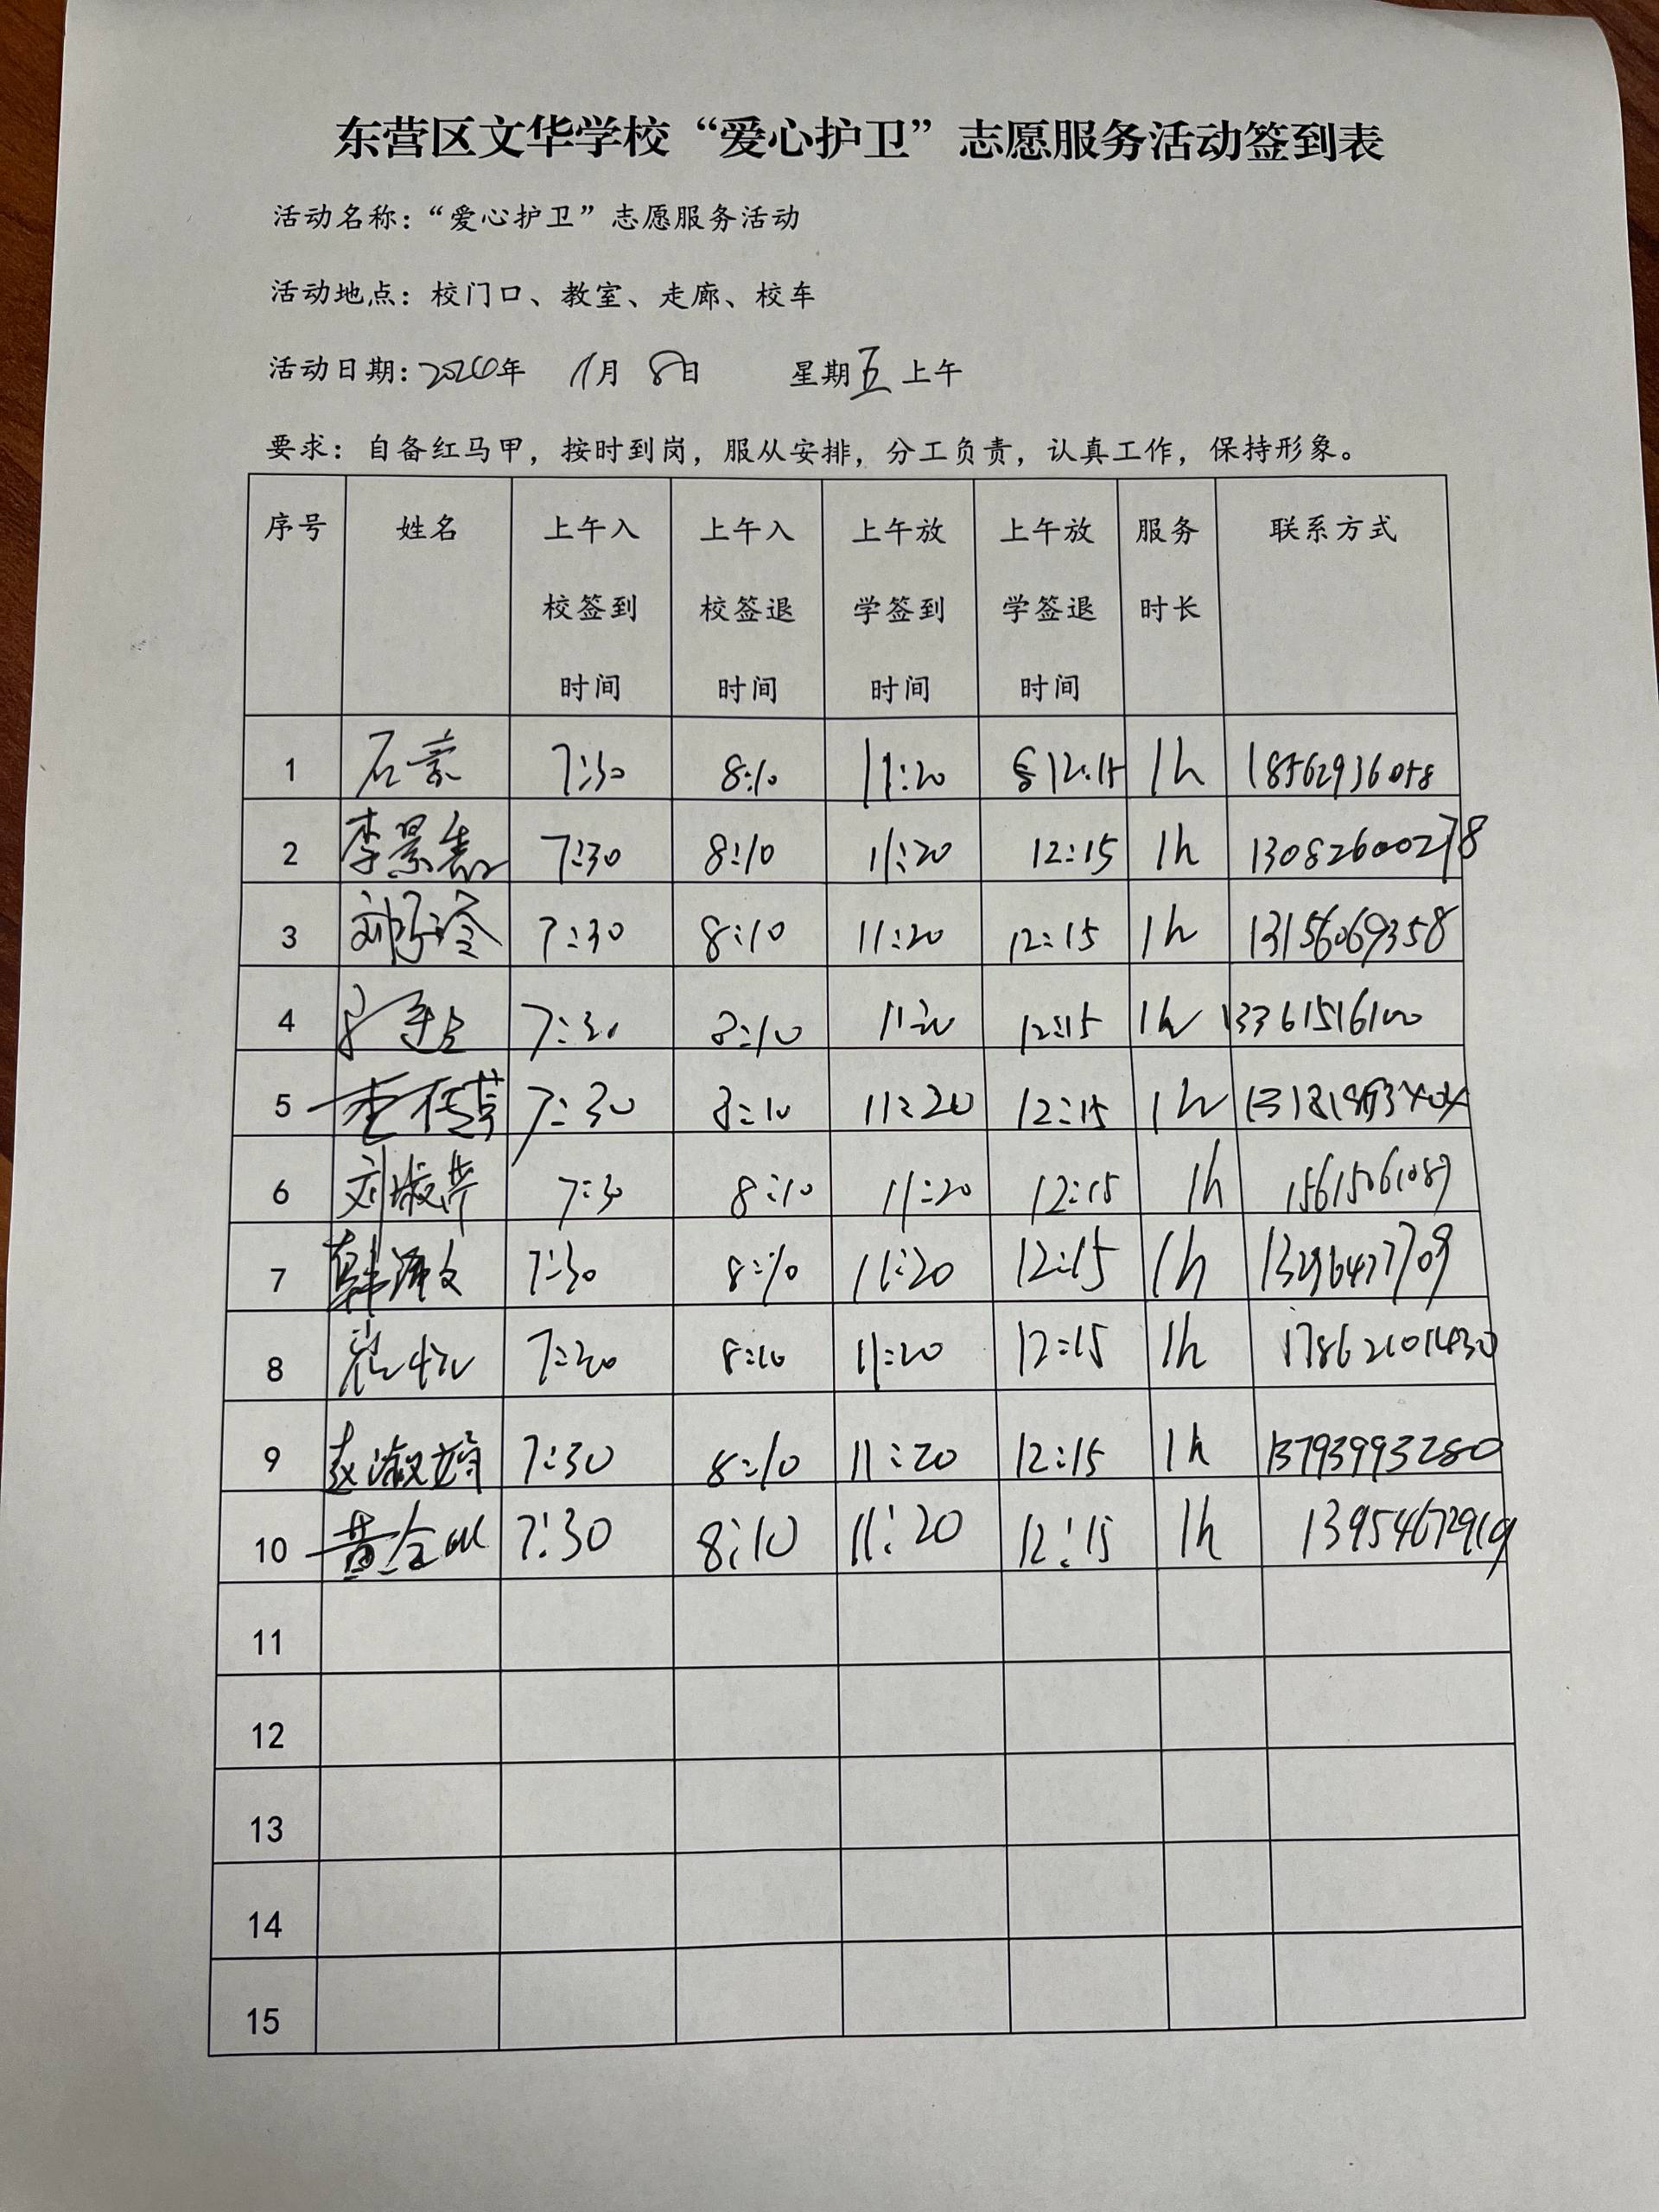 东营区文华学校“爱心护卫”志愿服务活动签到表
活动名称：“爱心护卫”志愿服务活动
活动地点：校门口、教室、走廊、校车
活动日期：年 11月 8日 星期五上午
要求：自备红马甲，按时到岗，服从安排，分工负责，认真工作，保持形象。
序号 姓名 上午入校签到时间 上午入校签退时间 上午放学签到时间 上午放学签退时间 服务时长 联系方式
1 7:30 8:10 11:20 12:15 1h 18562936058
2 李景 7:30 8:10 11:20 12:15 1h 13082600278
3 刘 7:30 8:10 11:20 12:15 1h 13156069358
4 7:30 8:10 11:20 12:15 1h 13361516100
5 7:30 8:10 11:20 12:15 1h
6 刘淑芹 7:30 8:10 11:20 12:15 1h 15615061089
7 韩 7:30 8:10 11:20 12:15 1h 13296477709
8 崔 7:20 8:10 11:20 12:15 1h
9 赵淑婷 7:30 8:10 11:20 12:15 1h 13793993280
10 黄 7:30 8:10 11:20 12:15 1h 13954672919
11
12
13
14
15